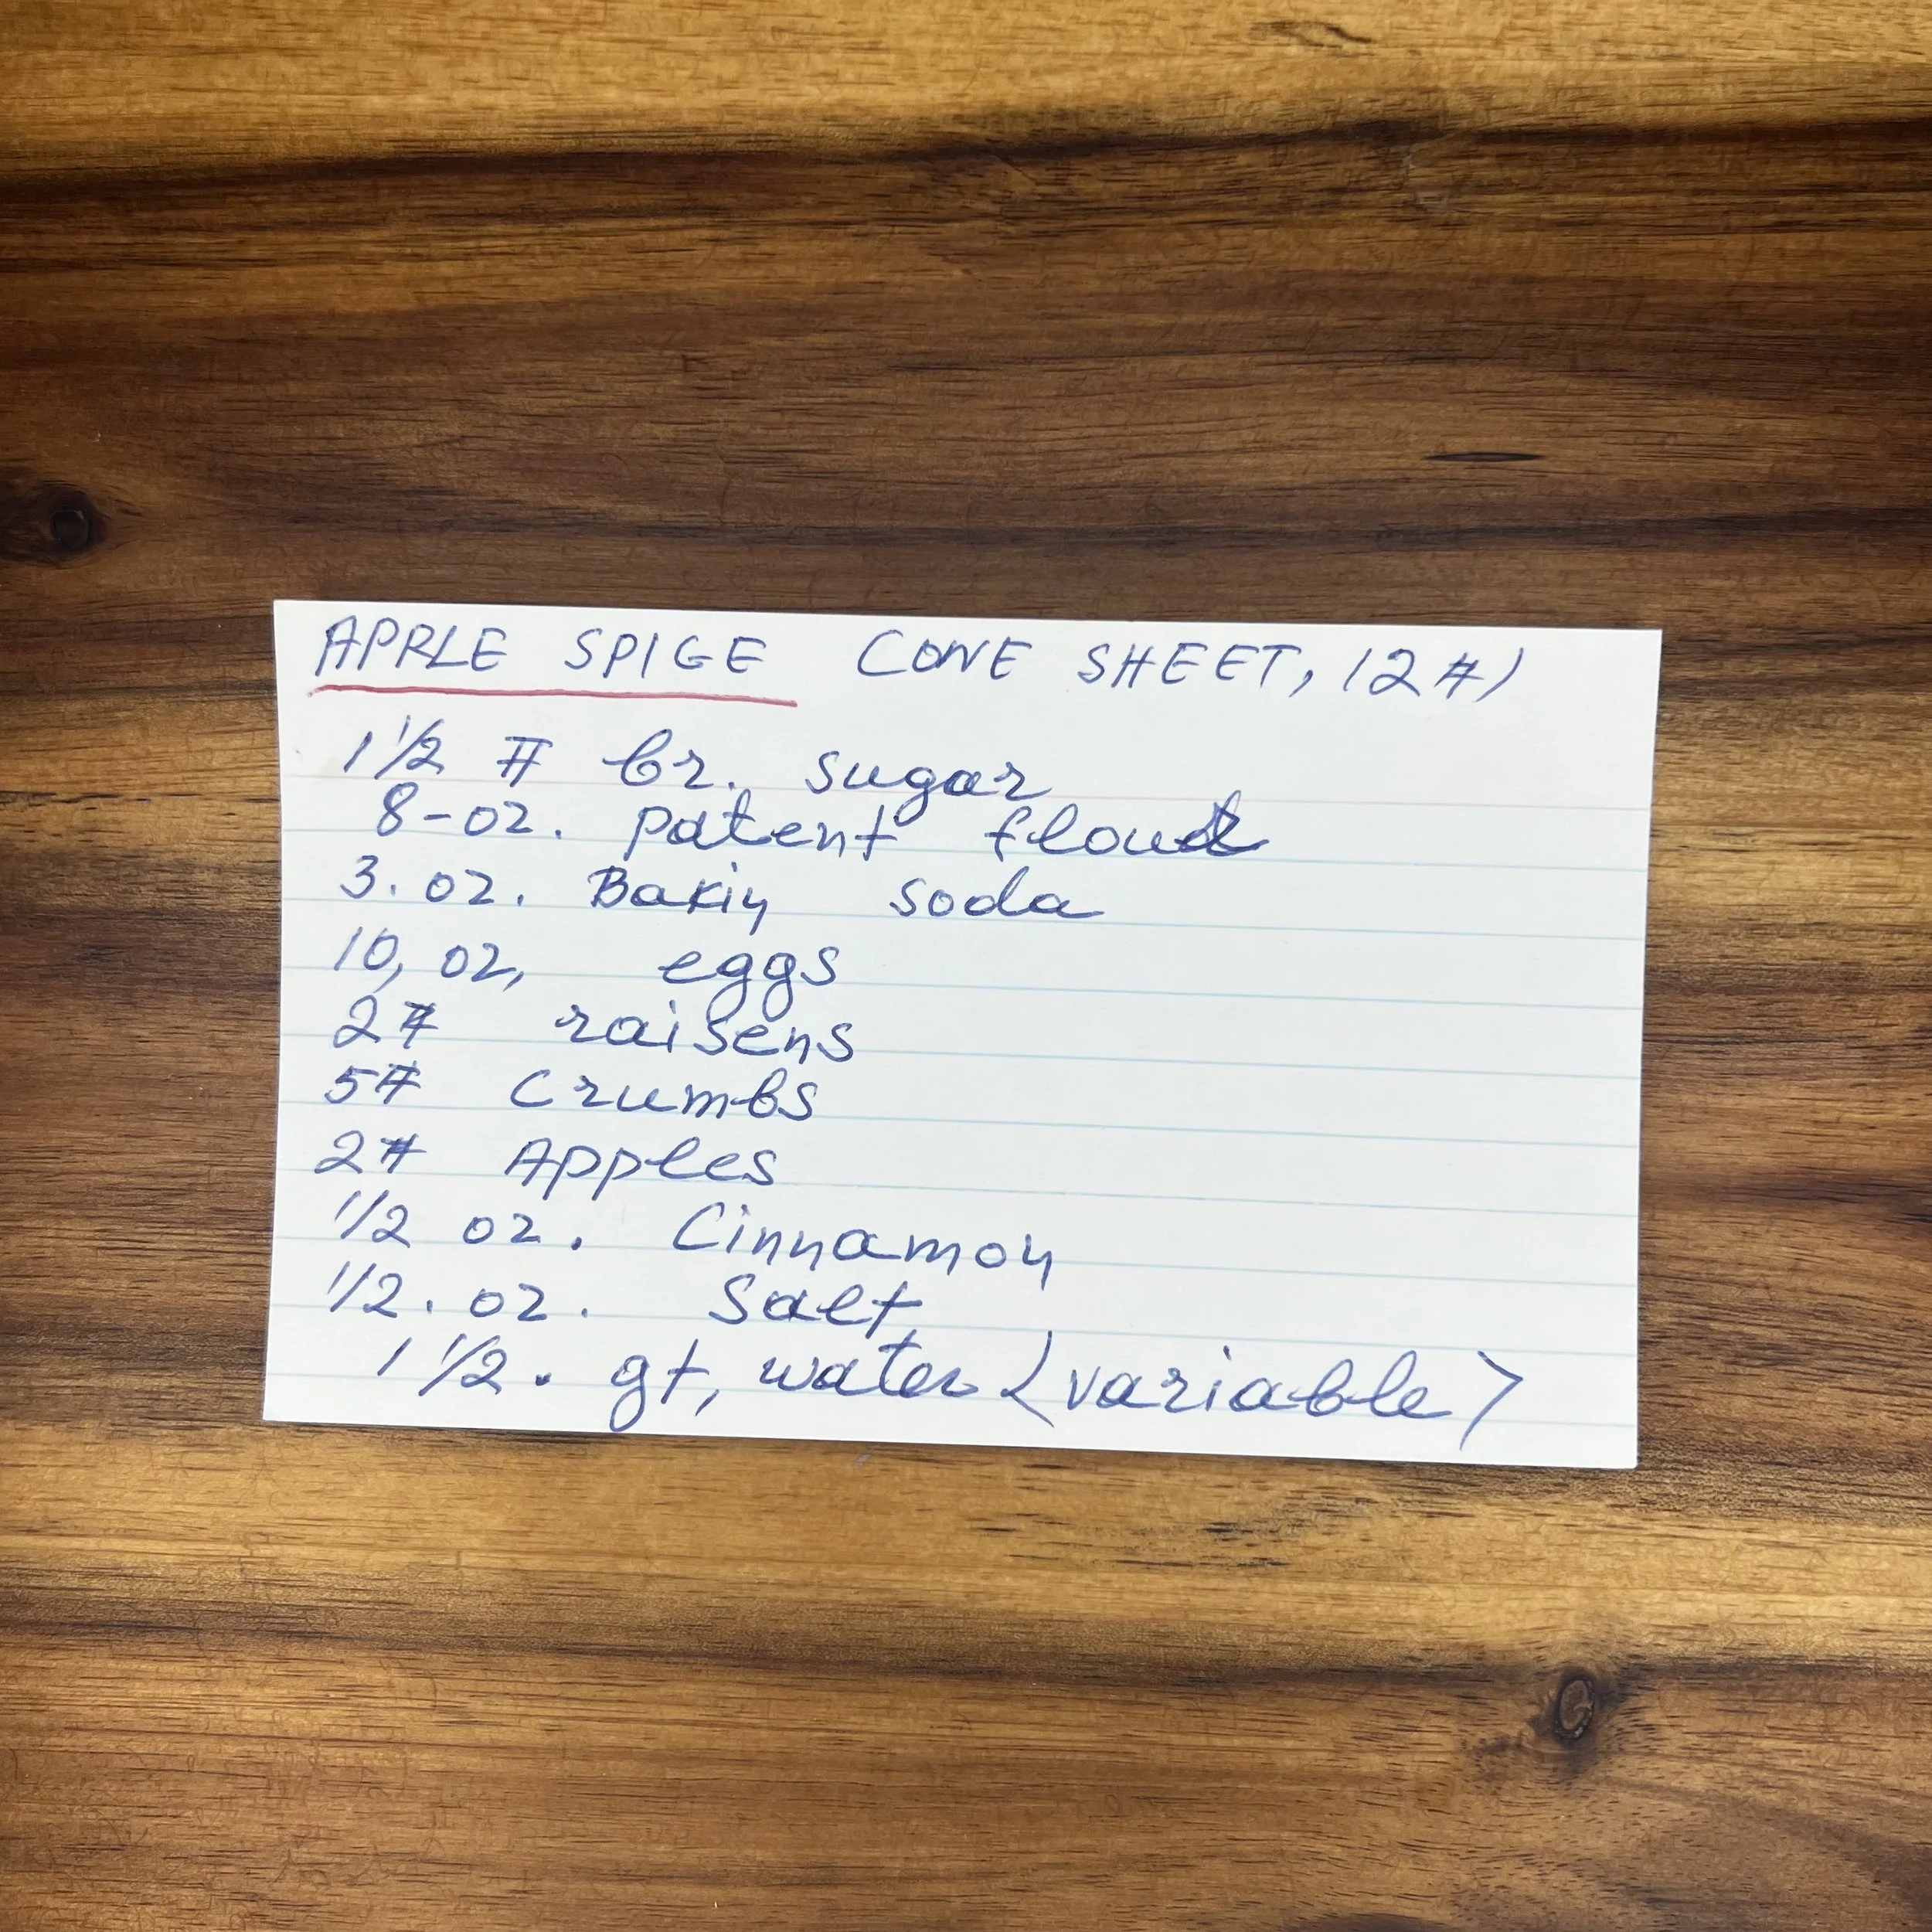 APPLE SPICE CONE SHEET, (2#)
1 1/2 # br. sugar
8-oz. patent flour
3. oz. Bakin soda
10, oz, eggs
2# raisens
5# Crumbs
2# Apples
1/2 oz. Cinnamon
1/2. oz. Salt
1 1/2. qt, water <variable>